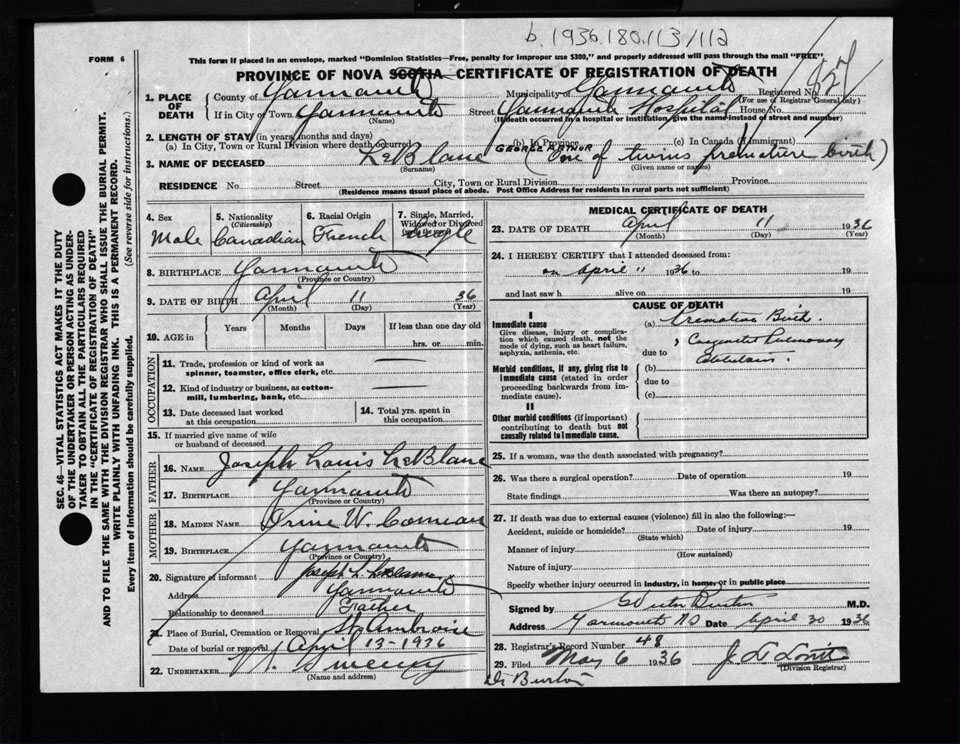 b. 1936.180.113/112
FORM 6
This form if placed in an envelope, marked "Dominion Statistics—Free, penalty for improper use $300," and properly addressed will pass through the mail "FREE"
PROVINCE OF NOVA SCOTIA—CERTIFICATE OF REGISTRATION OF DEATH
1. PLACE OF DEATH
County of Yarmouth Municipality of Yarmouth Registered No.
(For use of Registrar General only)
If in City or Town Yarmouth Street Yarmouth Hospital House No.
(Name) (If death occurred in a hospital or institution, give the name instead of street and number)
2. LENGTH OF STAY (in years, months and days)
(a) In City, Town or Rural Division where death occurred (b) In Province (c) In Canada (if immigrant)
GEORGE ARTHUR
3. NAME OF DECEASED LeBlanc (One of twins premature birth)
(Surname) (Given name or names)
RESIDENCE No. Street City, Town or Rural Division Province
(Residence means usual place of abode. Post Office Address for residents in rural parts not sufficient)
4. Sex
Male
5. Nationality
(Citizenship)
Canadian
6. Racial Origin
French
7. Single, Married, Widowed or Divorced
Single
8. BIRTHPLACE Yarmouth
(Province or Country)
9. DATE OF BIRTH April 11 36
(Month) (Day) (Year)
10. AGE in
Years Months Days If less than one day old
hrs. or min.
OCCUPATION
11. Trade, profession or kind of work as spinner, teamster, office clerk, etc.
12. Kind of industry or business, as cotton-mill, lumbering, bank, etc.
13. Date deceased last worked at this occupation
14. Total yrs. spent in this occupation
15. If married give name of wife or husband of deceased
FATHER
16. NAME Joseph Louis LeBlanc
17. BIRTHPLACE Yarmouth
(Province or Country)
MOTHER
18. MAIDEN NAME W. Comeau
19. BIRTHPLACE Yarmouth
(Province or Country)
20. Signature of informant Joseph L. LeBlanc
Address Yarmouth
Relationship to deceased Father
21. Place of Burial, Cremation or Removal St Ambroise
Date of burial or removal April 13-1936
22. UNDERTAKER Sweeny
(Name and address)
MEDICAL CERTIFICATE OF DEATH
23. DATE OF DEATH April 11 1936
(Month) (Day) (Year)
24. I HEREBY CERTIFY that I attended deceased from:
on April 11 1936 to 19
and last saw h alive on 19
CAUSE OF DEATH
I
Immediate cause
Give disease, injury or complication which caused death, not the mode of dying, such as heart failure, asphyxia, asthenia, etc.
(a) Premature Birth.
due to Pulmonary
Morbid conditions, if any, giving rise to immediate cause (stated in order proceeding backwards from immediate cause).
(b)
due to
(c)
II
Other morbid conditions (if important) contributing to death but not causally related to immediate cause.
25. If a woman, was the death associated with pregnancy?
26. Was there a surgical operation? Date of operation 19
State findings Was there an autopsy?
27. If death was due to external causes (violence) fill in also the following:—
Accident, suicide or homicide? Date of injury 19
(State which)
Manner of injury
(How sustained)
Nature of injury
Specify whether injury occurred in industry, in home, or in public place
Signed by Burton M.D.
Address Yarmouth NS Date April 30 1936
28. Registrar's Record Number 48
29. Filed May 6 1936
(Division Registrar)
Dr Burton
SEC. 46—VITAL STATISTICS ACT MAKES IT THE DUTY
OF THE UNDERTAKER OR PERSON ACTING AS UNDER-
TAKER TO OBTAIN ALL THE PARTICULARS REQUIRED
IN THE "CERTIFICATE OF REGISTRATION OF DEATH"
AND TO FILE THE SAME WITH THE DIVISION REGISTRAR WHO SHALL ISSUE THE BURIAL PERMIT.
WRITE PLAINLY WITH UNFADING INK. THIS IS A PERMANENT RECORD.
Every item of information should be carefully supplied. (See reverse side for instructions.)